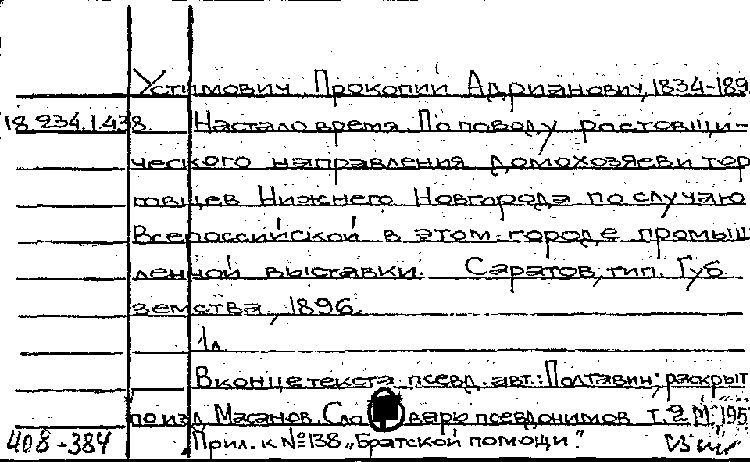 Устимович Прокопий Адрианович, 1834-189
18.234.1.438. Настало время. По поводу ростовщи-
ческого направления домохозяев и тор
говцев Нижнего Новгорода по случаю
Всероссийской в этом городе промыш
ленной выставки. Саратов, тип. Губ
земства, 1896.
1л.
В конце текста псевд. авт.: Полтавин; раскрыт
по изд. Масанов. Словарь псевдонимов т. 2 М., 195
408-384 Прил. к №138 „Братской помощи".